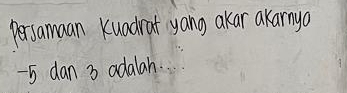 Persamaan Kuadrat yang akar akarnya
-5 dan 3 adalah....